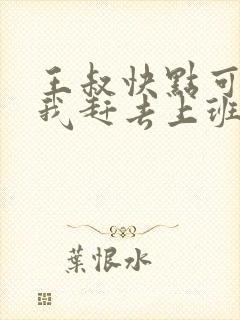 王叔快點可
我赶去上班
葉恨水